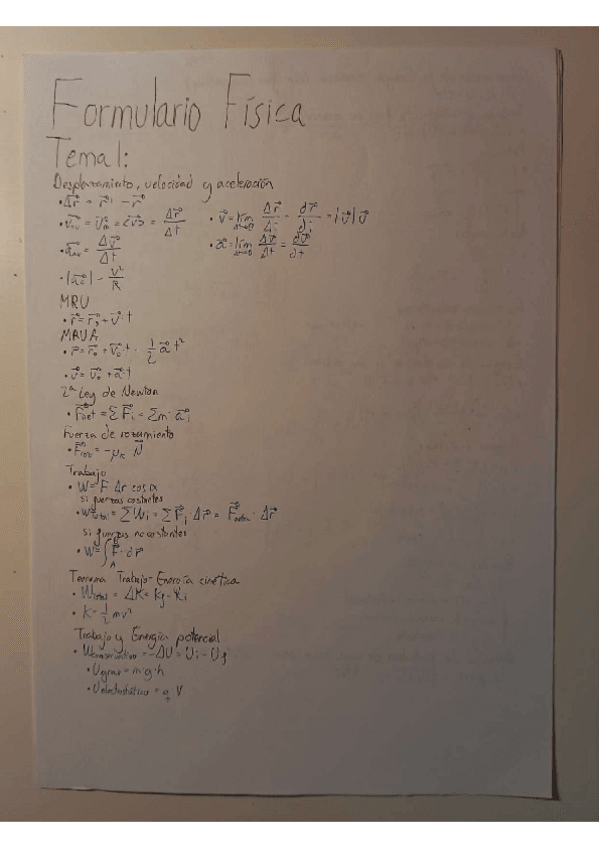 Formulario Física
Tema 1:
Desplazamiento, velocidad y aceleración
• Δr⃗ = r⃗' - r⃗
• v⃗ₐᵥ = v⃗ₘ = <v⃗> = Δr⃗/Δt • v⃗ = lím Δt→0 Δr⃗/Δt = dr⃗/dt = |v⃗| v⃗
• a⃗ₐᵥ = Δv⃗/Δt • a⃗ = lím Δt→0 Δv⃗/Δt = dv⃗/dt
• |a⃗c| = v²/R
MRU
• r⃗ = r⃗₀ + v⃗·t
MRUA
• r⃗ = r⃗₀ + v⃗₀·t · 1/2 a⃗ t²
• v⃗ = v⃗₀ + a⃗·t
2ª Ley de Newton
• F⃗net = Σ F⃗ᵢ = Σm·a⃗ᵢ
Fuerza de rozamiento
• F⃗roz = -μ N⃗
Trabajo
• W = F Δr cos α
si fuerzas costantes
• Wtotal = ΣWᵢ = ΣF⃗ᵢ · Δr⃗ = F⃗ · Δr⃗
si fuerzas no costantes
• W = ∫A F⃗ · dr⃗
Teorema Trabajo-Energía cinética
• Wtotal = ΔK = Kf - Ki
• K = 1/2 mv²
Trabajo y Energía potencial
• Wconservativo = -ΔU = Ui - Uf
• Ugrav = m·g·h
• Uelectrostático = q V